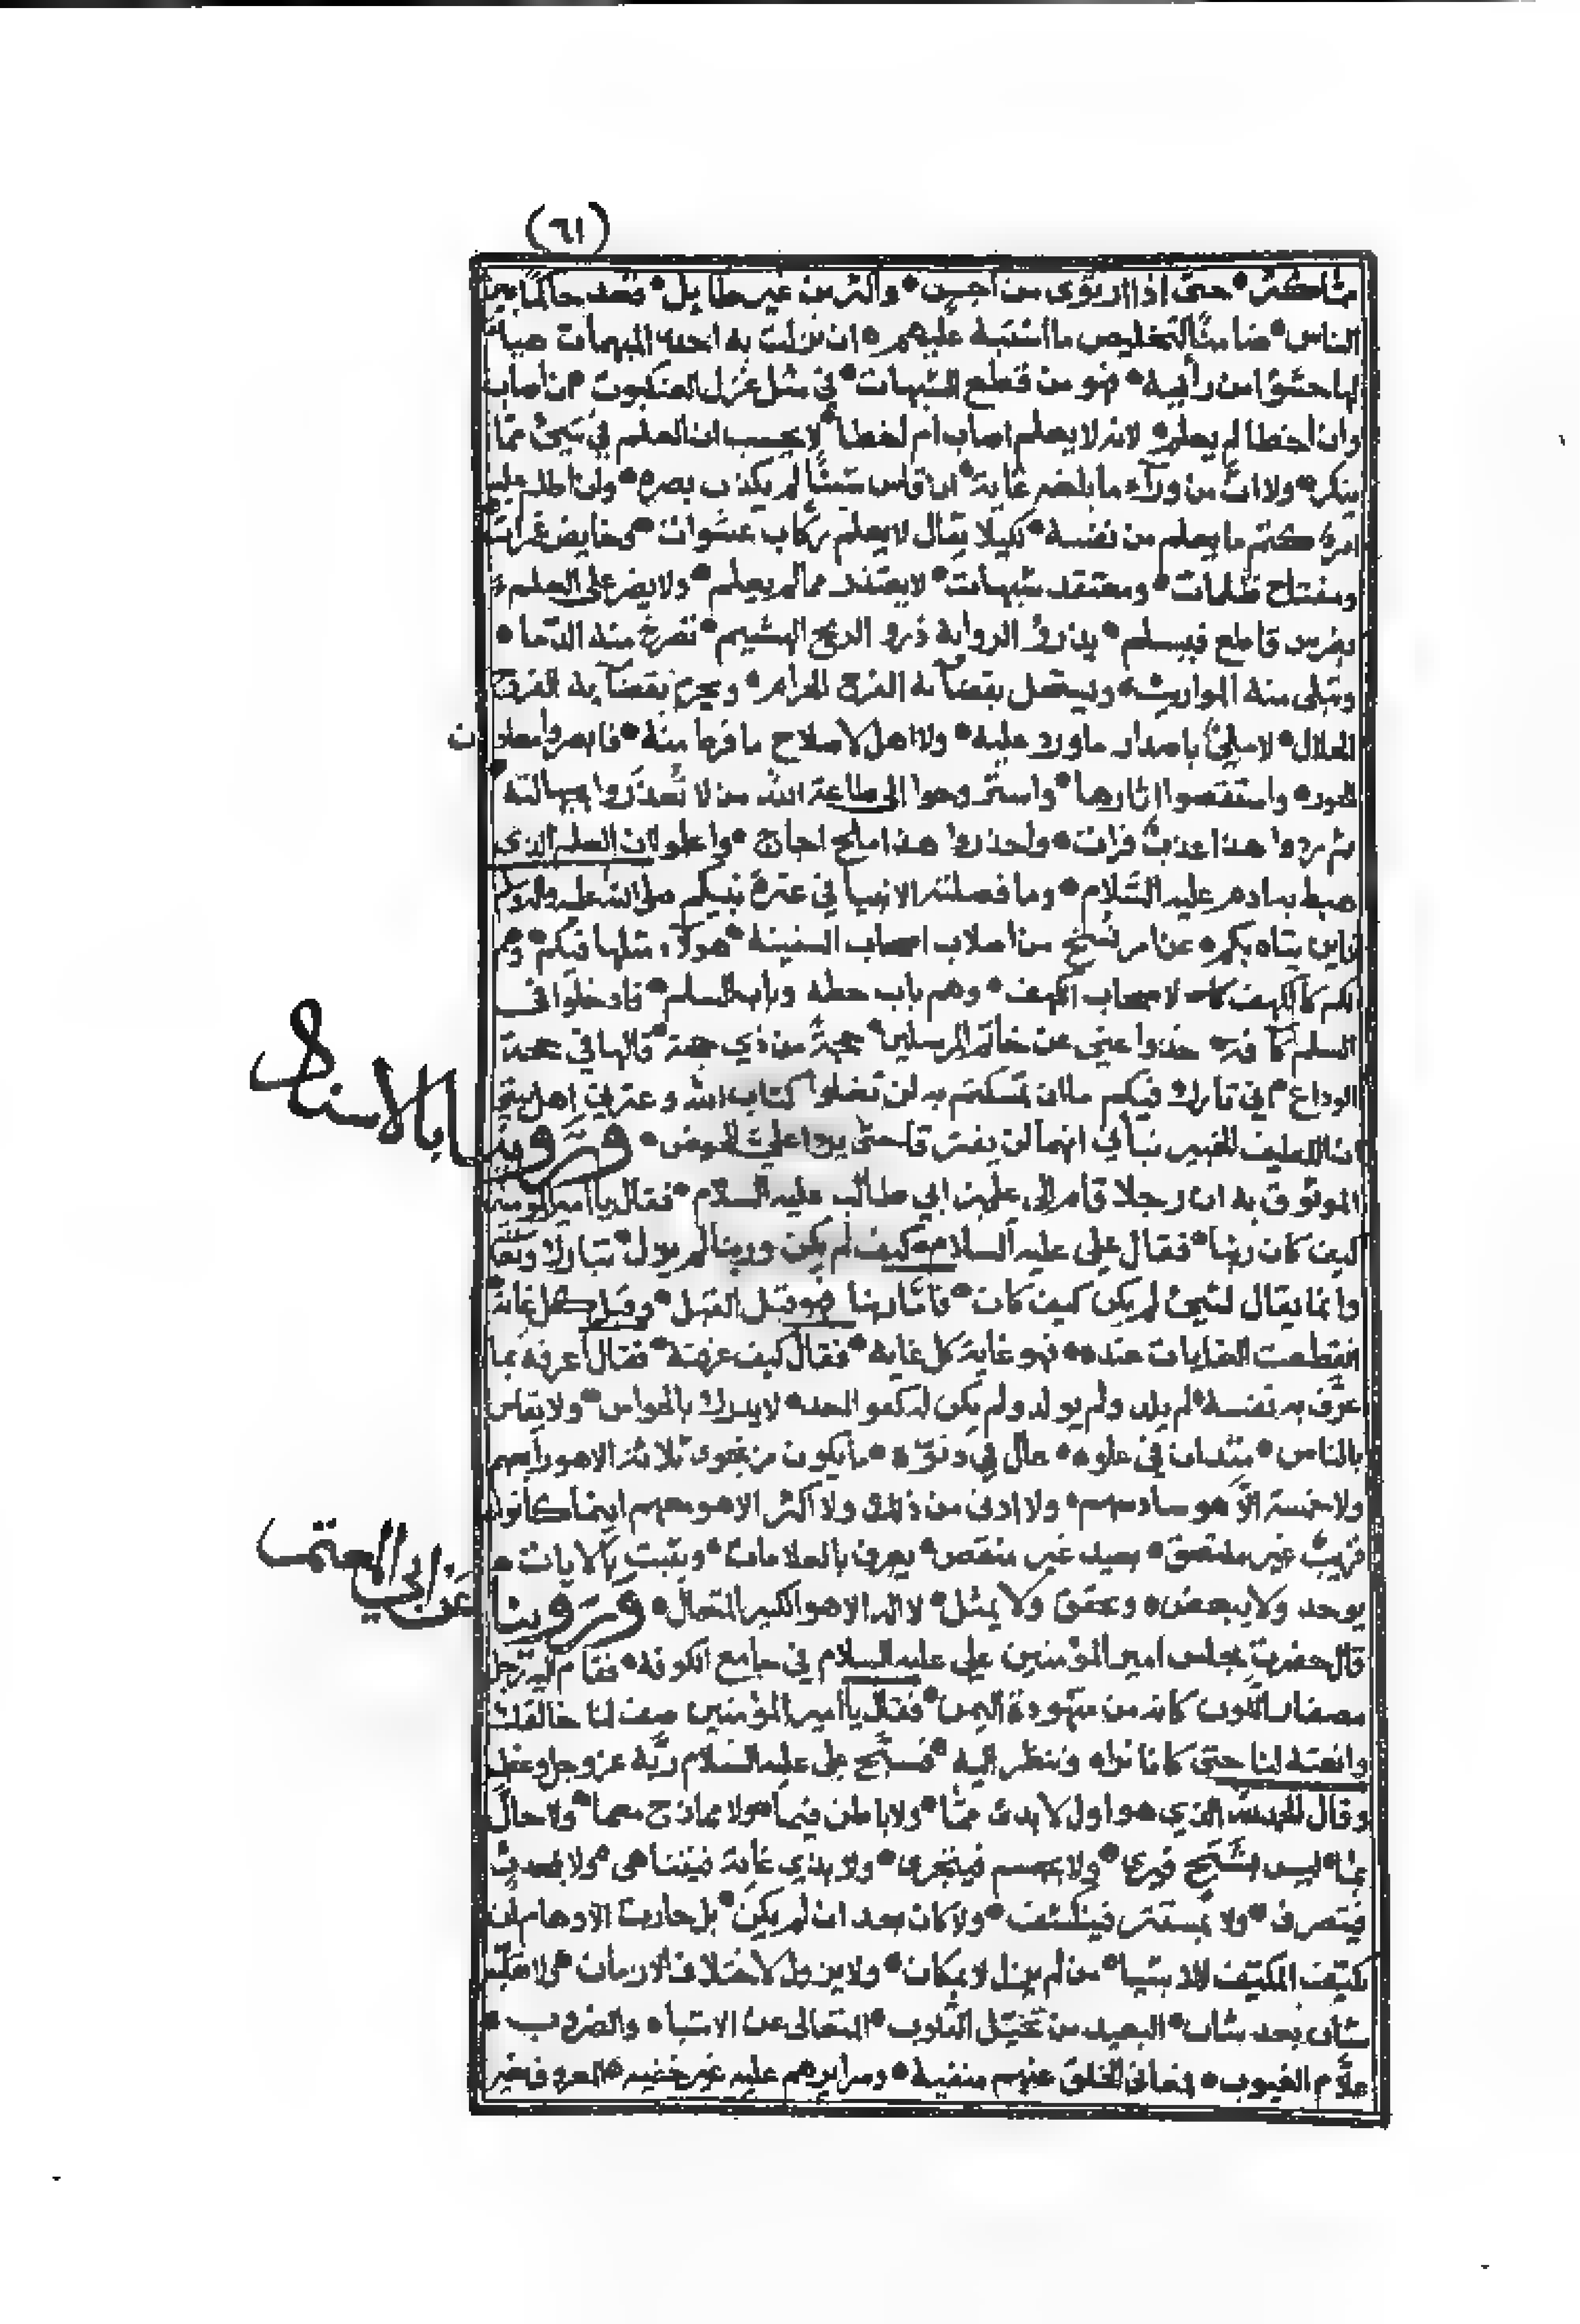 (٦١)
حتى اذا ارتوى من آجن واكثر من غير طايل قعد حاكما بين
الناس ضامنًا لتخليص ما اشتبه عليهم ان نزلت به احدى المبهمات هيا
لها حشوًا من رأيه فهو من قطع الشبهات في مثل غزل العنكبوت ان اصاب
وان اخطا لم يعلم لانه لا يعلم اصاب ام اخطا لا يحسب ان العلم في شيئ مما
ينكر ولا ان من ورآء ما بلغه غاية ان قاس شيئًا لم يكذب بصره وان اظلم عليه
امرٌ كتم ما يعلم من نفسه لكيلا يقال لا يعلم ركاب عشوات وخايض غمرات
ومفتاح ظلمات ومعتقد شبهات لا يعتذر مما لم يعلم ولا يعض على العلم
بضرس قاطع فيسلم يذرؤ الرواية ذرو الريح الهشيم تصرخ منه الدما
وتبكي منه المواريث ويستحل بقضآئه الفرج الحرام ويحرم بقضآيه الفرج
الحلال لا ملئ باصدار ما ورد عليه ولا اهل لاصلاح ما منه
واستقصوا اثارها واستروحوا الى طاعة الله من لا تعذروا بجهالته
ثم ردوا هذا عذب فرات واحذروا هذا ملح اجاج واعلموا ان العلم الذي
هبط به ادم عليه السّلام وما فصلته الانبيا في عترة نبيكم صلى الله عليه واله وسلم
فاين يتاه بكم عن امر نُسخ من اصلاب اصحاب السفينة هولآء مثلها فيكم وهم
لكم كالكهف لاصحاب الكهف وهم باب حطة وباب السلم فادخلوا في
السلم كافة خذوا عني عن خاتم المرسلين حجةً من ذي حجة قالها في حجة
الوداع اني تارك فيكم ما ان تمسكتم به لن تضلوا كتاب الله وعترتي اهل بيتي
ان اللطيف الخبير نبأني انهما لن يفترقا حتى يردا علي الحوض وروينا بالاسناد
الموثوق به ان رجلا قام الى علي بن ابي طالب عليه السلام فقال يا امير المومنين
كيف كان ربنا فقال علي عليه السلام كيف لم يكن وربنا لم يزل تبارك وتعالى
وانما يقال لشيئ لم يكن كيف كان فأمّا ربنا فهو قبل القبل وقبل كل غاية
انقطعت الغايات عنده فهو غاية كل غاية فقال كيف عرفته فقال اعرفه بما
عرّف به نفسه لم يلد ولم يولد ولم يكن له كفوا احد لا يدرك بالحواس ولا يقاس
بالناس متدان في علوه عال في دنوّه ما يكون من نجوى ثلاثة الا هو رابعهم
ولا خمسة الّا هو سادسهم ولا ادنى من ذلك ولا اكثر الا هو معهم اينما كانوا
قريبٌ غير ملتصق بعيد غير متقص يعرف بالعلامات ويثبت بالايات
يوحد ولا يبعض ويحقق ولا يمثل لا اله الا هو الكبير المتعال وروينا عن ابي المعتمر
قال حضرت مجلس امير المؤمنين علي عليه السلام في جامع الكوفة فقام اليه رجل
مصفار اللون كانه من متهودة اليمن فقال يا امير المؤمنين صف لنا خالقك
وانعته لنا حتى كانا نراه وننظر اليه فسبّح علي عليه السلام ربّه عز وجل وعظمه
وقال الحمد لله الذي هو اول لا بدئ ممّا ولا باطن فيما ولا ممازج معما ولا حالٌ
بما ليس بشَبَح فيرى ولا بجسم فيتجزى ولا بذي غاية فيتناهى ولا بمحدث
فيتصرف ولا بمستتر فيتكشف ولا كان بعد ان لم يكن بل حارت الاوهام ان
تكيّف المكيّف للاشيا من لم يزل لا بمكان ولا يزول لاختلاف الازمان ولا
شان بعد شان البعيد من تخيّل القلوب المتعالي عن الاشباه والضروب
علّام الغيوب فمعاني الخلق عنهم منفية وسرايرهم عليه غير خفية المعروف بغير